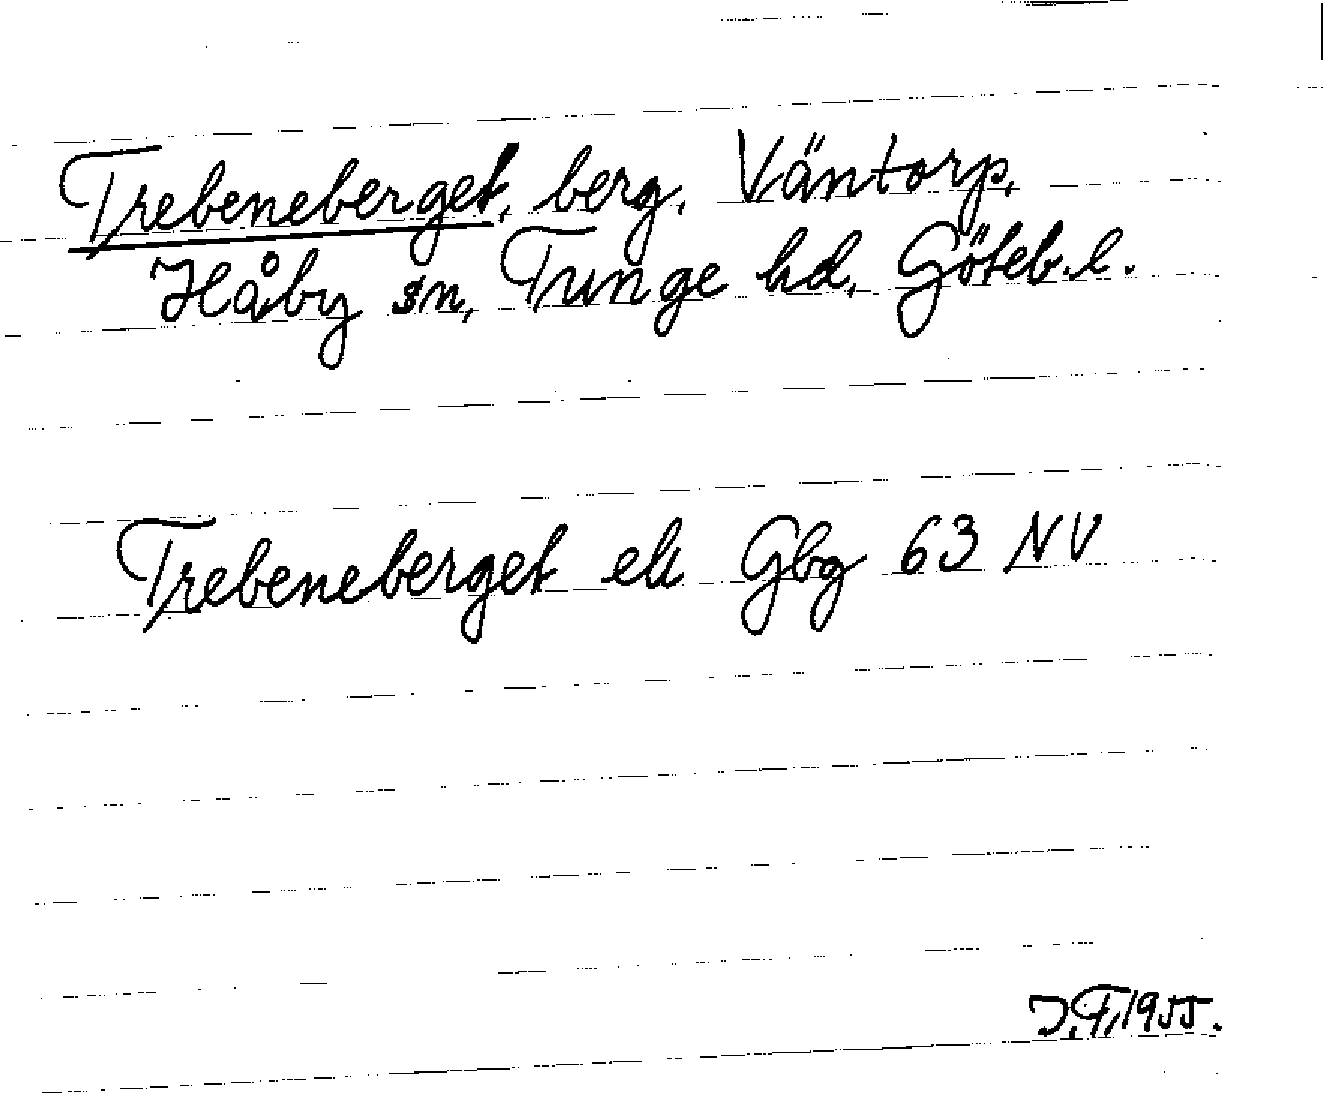 Trebeneberget, berg, Väntorp,
Håby sn, Tunge hd, Göteb. l.
Trebeneberget ek Gbg 63 NV
J.T. 1955.